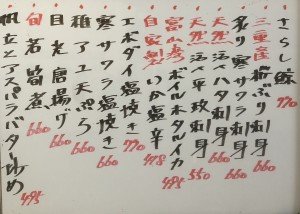 さらし鯨 770
三重産 ぶり刺身 660
炙り寒サワラ刺身 660
天然 活ハタ刺身 660
天然 活平政刺身 550
ボイルホタルイカ 495
自家製 いか塩辛 418
エボダイ塩焼き 770
寒サワラ塩焼き 660
稚アユ天ぷら 660
目光唐揚げ 660
旬 若筍煮 660
帆立とアスパラバター炒め 495